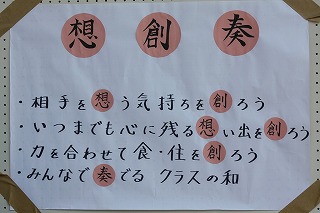 想 創 奏
・相手を想う気持ちを創ろう
・いつまでも心に残る想い出を創ろう
・力を合わせて食・住を創ろう
・みんなで奏でる クラスの和